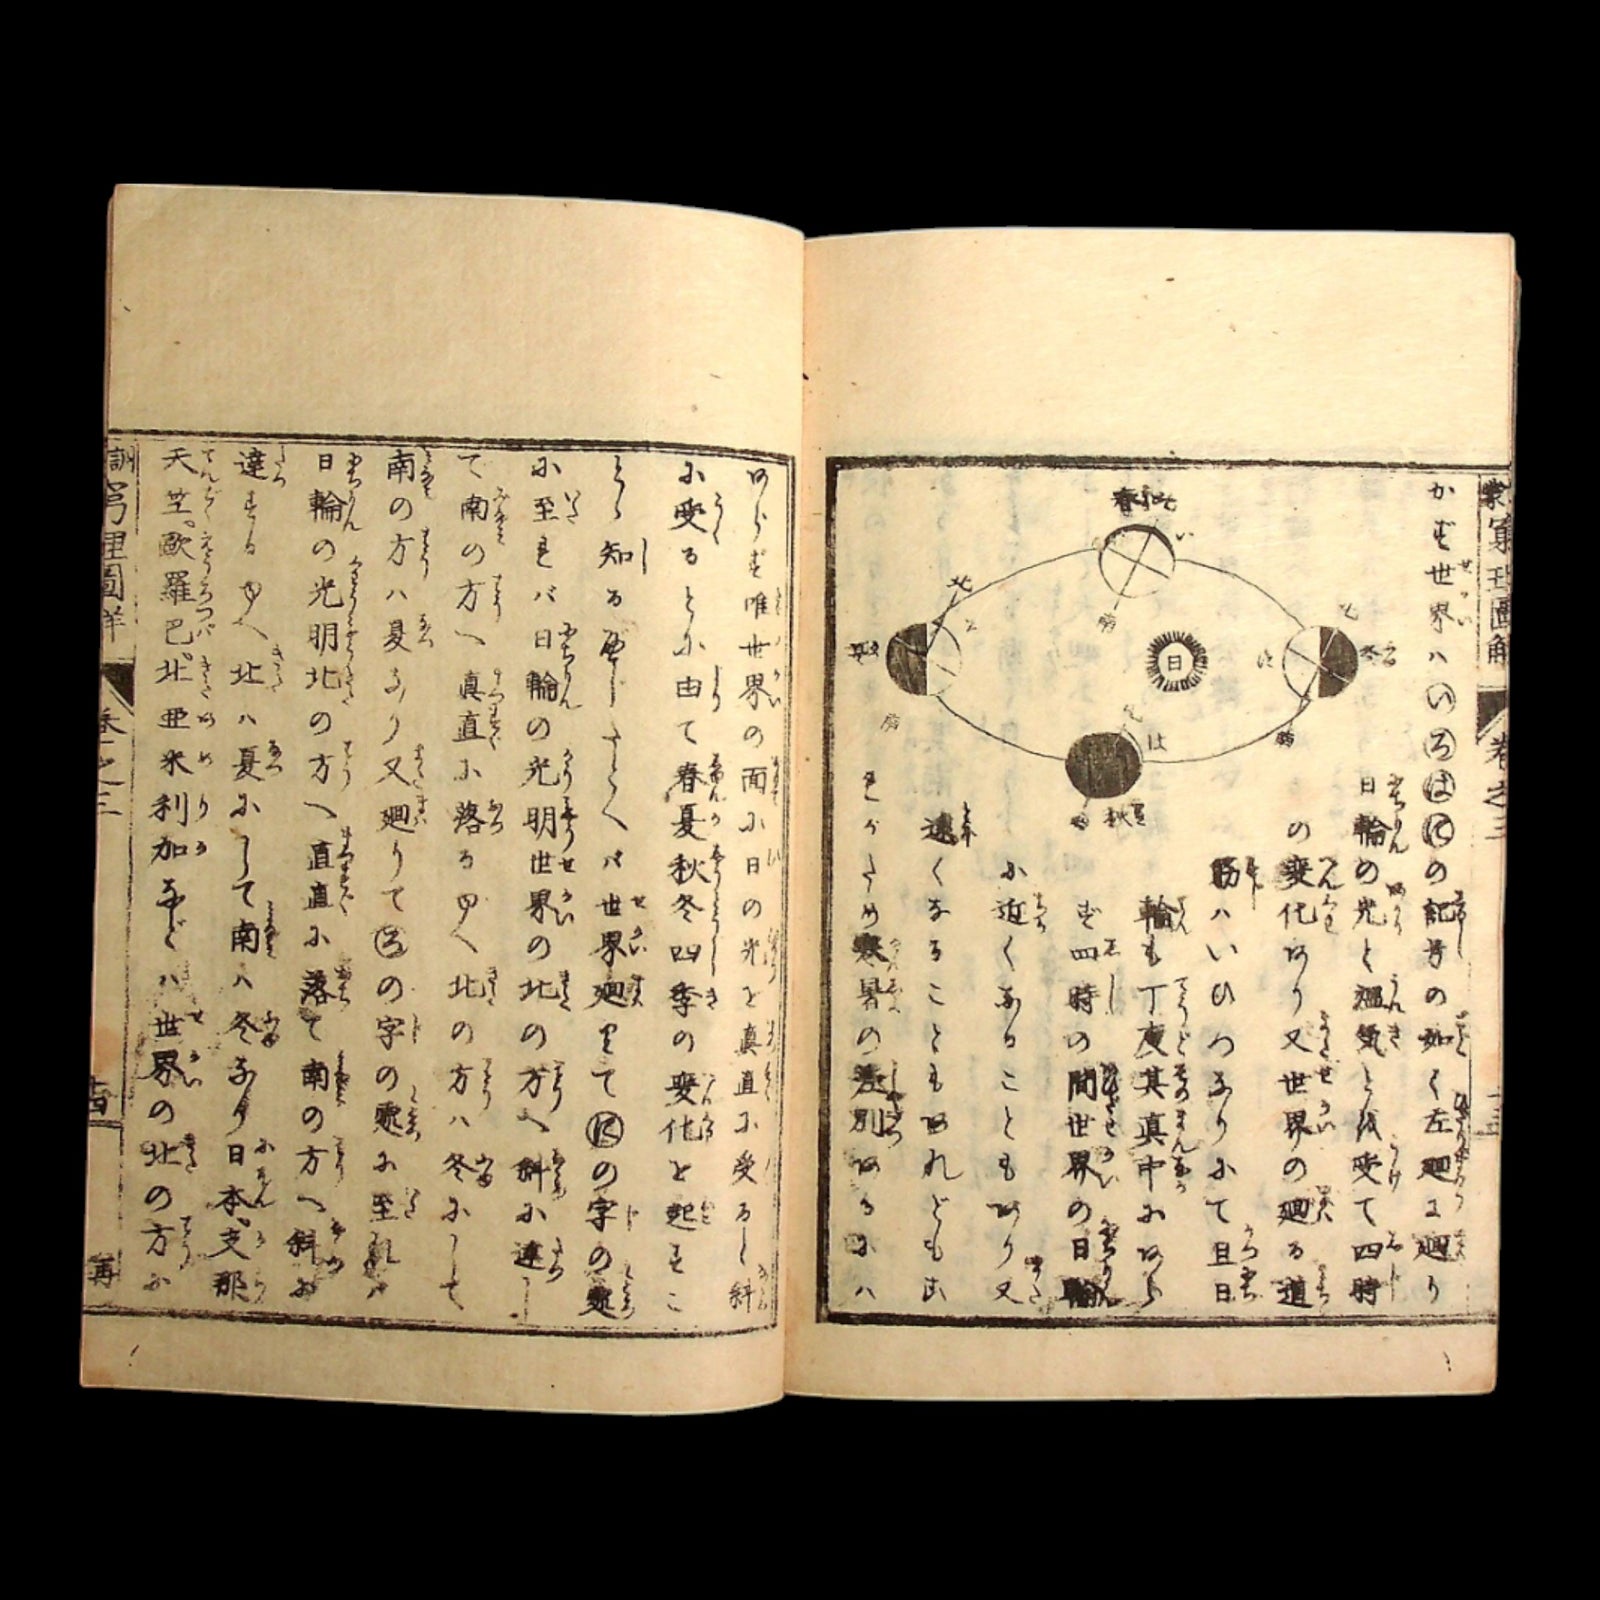 窮理圖解
卷之三
十三
春
北
い
南
北
ろ
夏
南
日
北
に
冬
南
北
は
秋
南
かず世界ハいろはにの記号の如く左廻に廻り
日輪の光と温氣とを受て四時
の変化あり又世界の廻る道
筋ハいびつなりにて且日
輪も丁度其真中にあら
ず四時の間世界の日輪
に近くなることもあり又
遠くなることもあれどもこ
れがため寒暑の差別あるにハ
あらず唯世界の面に日の光を真直に受ると斜
に受るとに由て春夏秋冬四季の変化を起すこ
とゝ知るべしたとへバ世界廻りてにの字の處
に至れバ日輪の光明世界の北の方へ斜に達し
て南の方へ真直に落るゆへ北の方ハ冬にして
南の方ハ夏なり又廻りてろの字の處に至れバ
日輪の光明北の方へ真直に落て南の方へ斜に
達するゆへ北ハ夏にして南ハ冬なり日本、支那
天竺、歐羅巴、北亜米利加などハ世界の北の方に
訓蒙窮理圖解
卷之三
十四
再